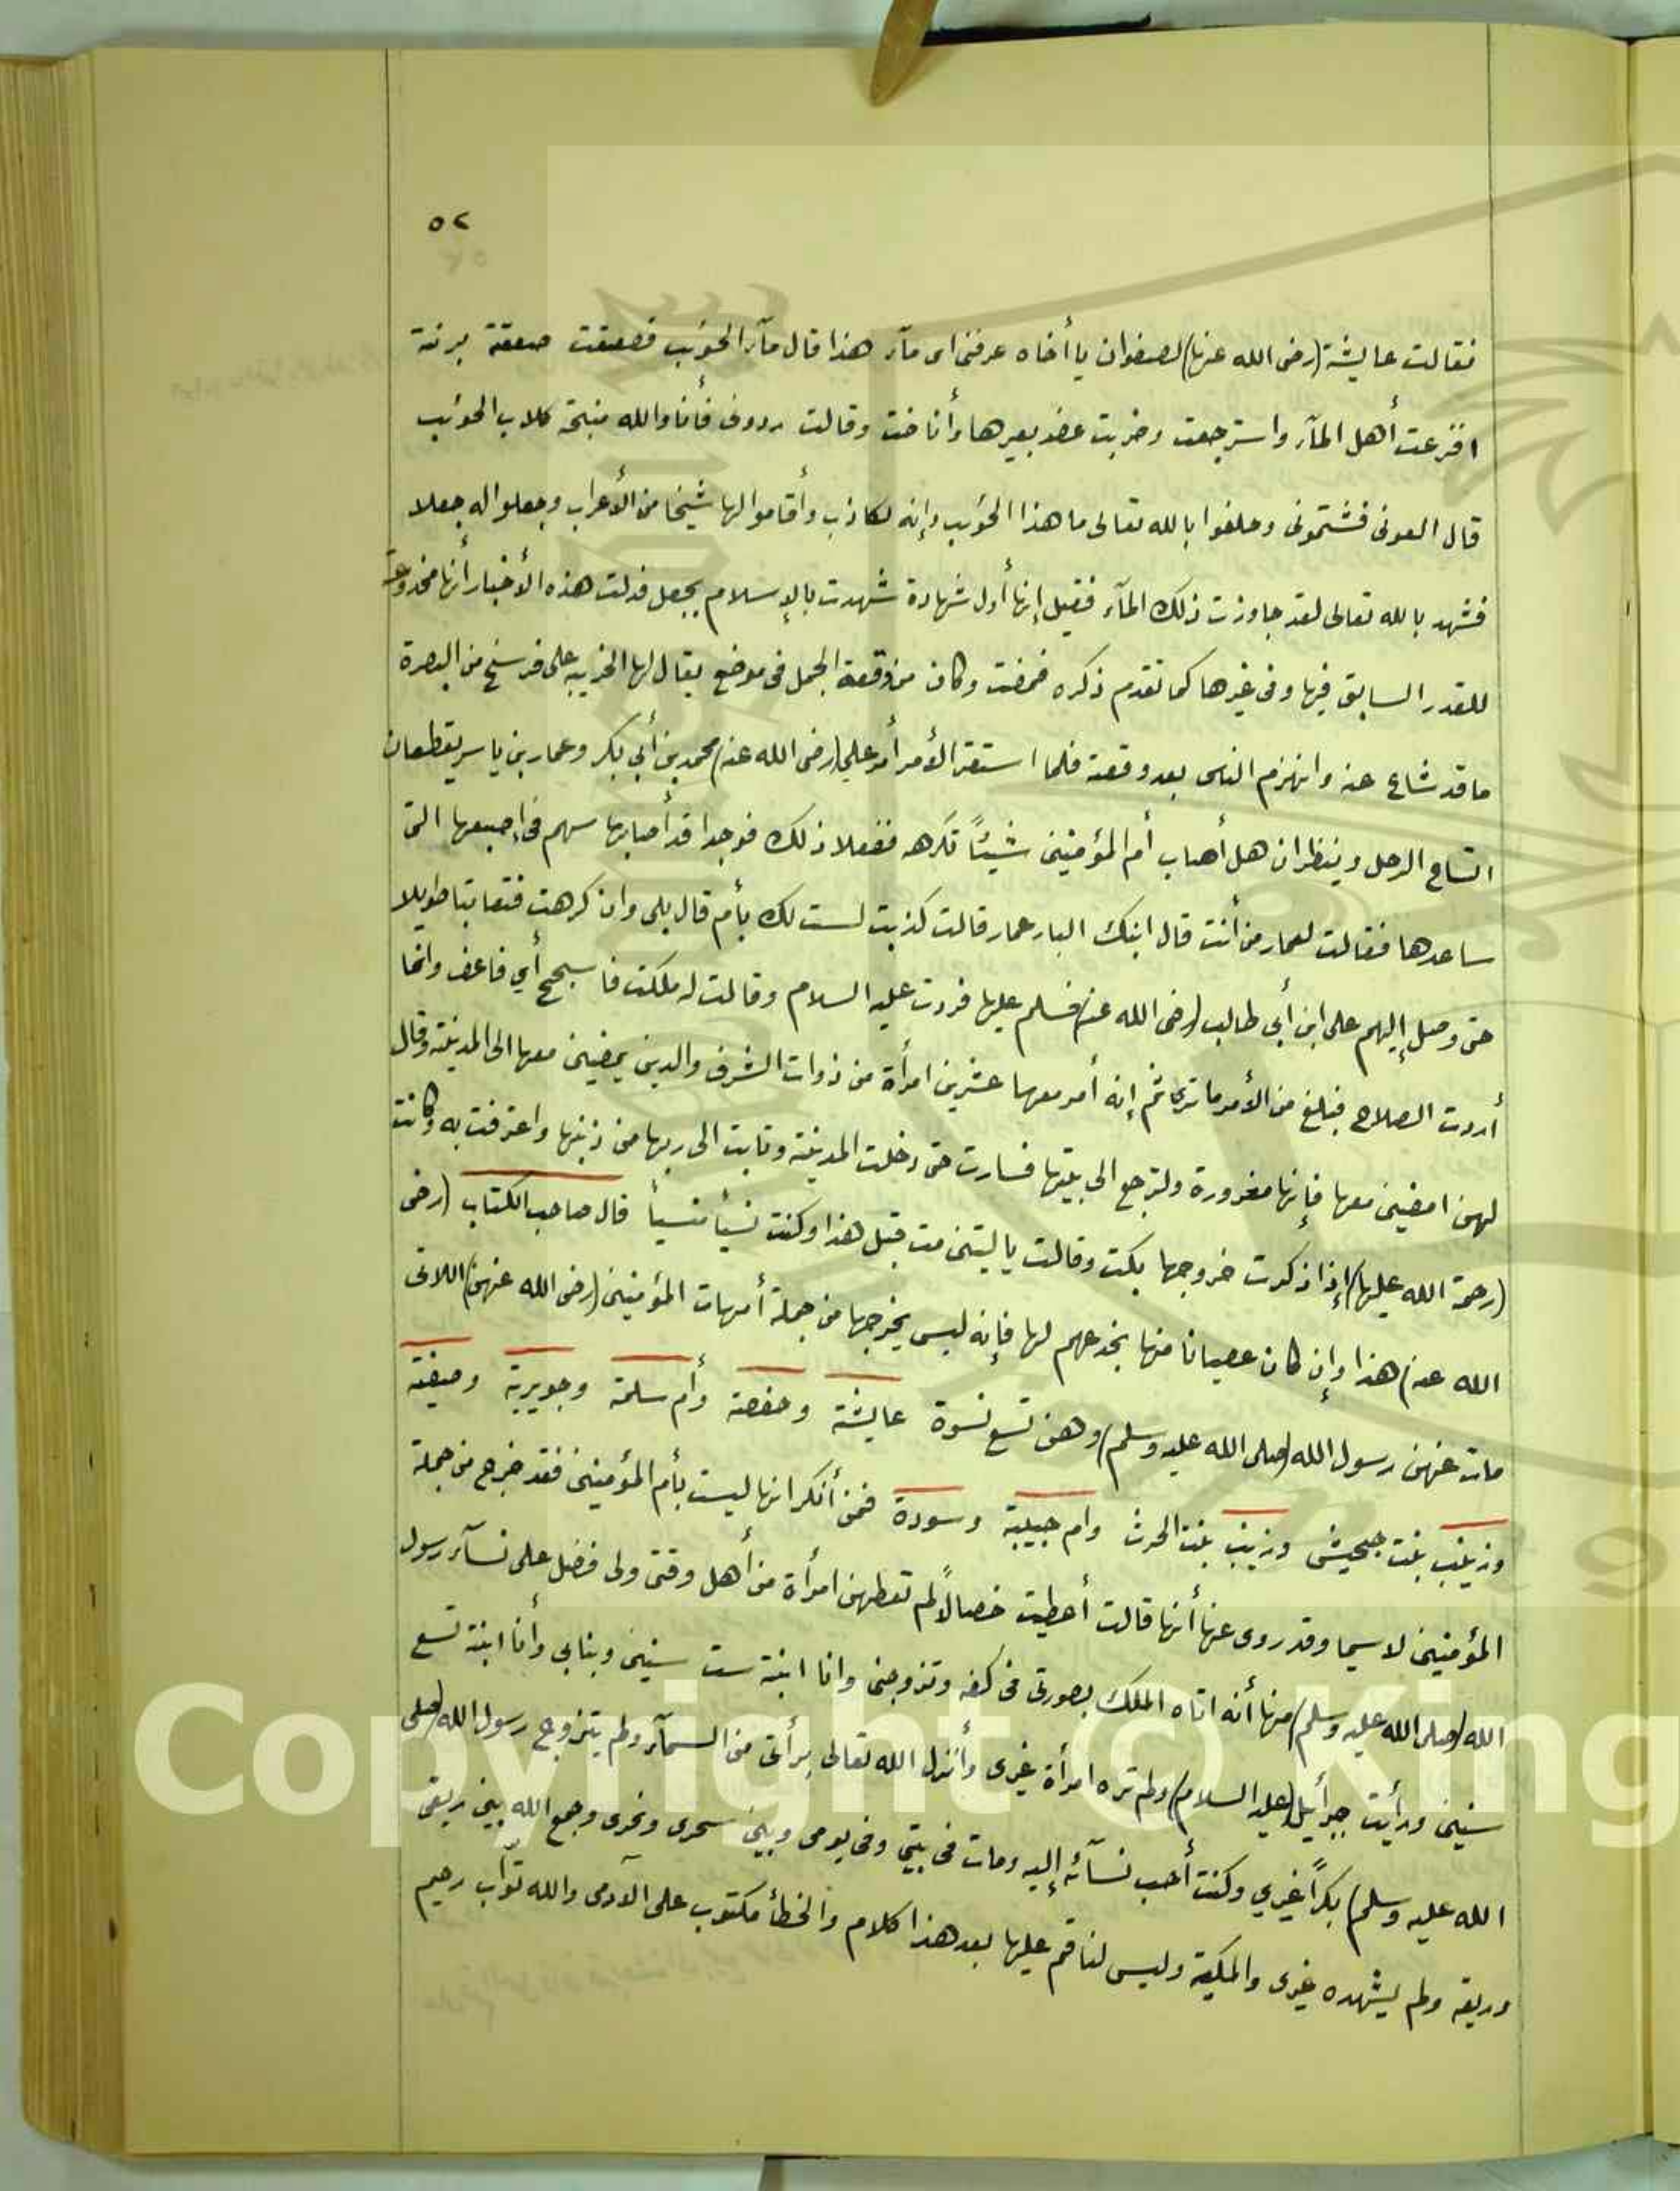 ٥٢
فقالت عايشة (رضى الله عنها) لصفوان يا أخاه عرفنى اى مآء هذا قال مآء الحؤيب فصعقت صعقة برنة
افزعت أهل المآء واسترجعت وضربت عضد بعيرها وأناخت وقالت ردونى فأنا والله منبحة كلاب الحوئيب
قال العونى فشتمونى وحلفوا بالله تعالى ما هذا الحؤيب وإنه لكاذب وأقاموا لها شيخا من الأعراب وجعلوا له جعلا
فشهد بالله تعالى لقد جاوزت ذلك المآء فقيل إنها أول شهادة شهدت بالإسلام بجعل فدلت هذه الأخبار أنها مخدوعة
للقدر السابق فيها وفى غيرها كما تقدم ذكره فمضت وكان من وقعة الجمل فى موضع يقال لها الخريبه على فرسخ من البصرة
ما قد شاع عنه وانهزم الناس بعد وقعته فلما استقر الأمر أمر علي (رضى الله عنه) محمد بن أبي بكر وعمار بن ياسر يقطعان
انساع الرحل وينظران هل أصاب أم المؤمنين شيئاً تكره ففعلا ذلك فوجدا قد أصابها سهم فى إصبعها التى
ساعدها فقالت لعمار من أنت قال ابنك البار عمار قالت كذبت لست لك بأم قال بلى وان كرهت فتعاتبا طويلا
حتى وصل إليهم على ابن أبي طالب (رضى الله عنه) فسلم عليها فردت عليه السلام وقالت له ملكت فاسجح أي فاعف وانما
أردت الصلاح فبلغ من الأمر ما ترى ثم إنه أمر معها عشرين امرأة من ذوات الشرف والدين يمضين معها الى المدينة وقال
لهن امضين معها فإنها مغرورة ولترجع الى بيتها فسارت حتى دخلت المدينة وتابت الى ربها من ذنبها واعترفت به وكانت
(رحمة الله عليها) إذا ذكرت خروجها بكت وقالت يا ليتنى مت قبل هذا وكنت نسيأ منسيأ قال صاحب الكتاب (رضى
الله عنه) هذا وإن كان عصيانا منها بخدعهم لها فإنه ليس يخرجها من جملة أمهات المؤمنين (رضى الله عنهن) اللاتى
مات عنهن رسول الله (صلى الله عليه وسلم) وهن تسع نسوة عايشة وحفصة وأم سلمة وجويرية وصفية
وزينب بنت جحيش وزينب بنت الحرث وام حبيبة وسودة فمن أنكر انها ليست بأم المؤمنين فقد خرج من جملة
المؤمنين لاسيما وقد روى عنها أنها قالت أعطيت خصالاً لم تعطهن امرأة من أهل وقتى ولى فضل على نسآء رسول
الله (صلى الله عليه وسلم) منها أنه اتاه الملك بصورتى فى كفه وتزوجنى وانا ابنة ست سنين وبنابى وأنا ابنة تسع
سنين ورأيت جبرأيل (عليه السلام) ولم تره امرأة غيرى وأنزل الله تعالى برأتى من السمآء ولم يتزوج رسول الله (صلى
الله عليه وسلم) بكراً غيري وكنت أحب نسآئه إليه ومات فى بيتى وفى يومى وبين سحرى ونحرى وجمع الله بين ريقى
وريقه ولم يشهده غيرى والمليكة وليس لناقم عليها بعد هذا كلام والخطأ مكتوب على الآدمى والله توّاب رحيم
Copyright © King